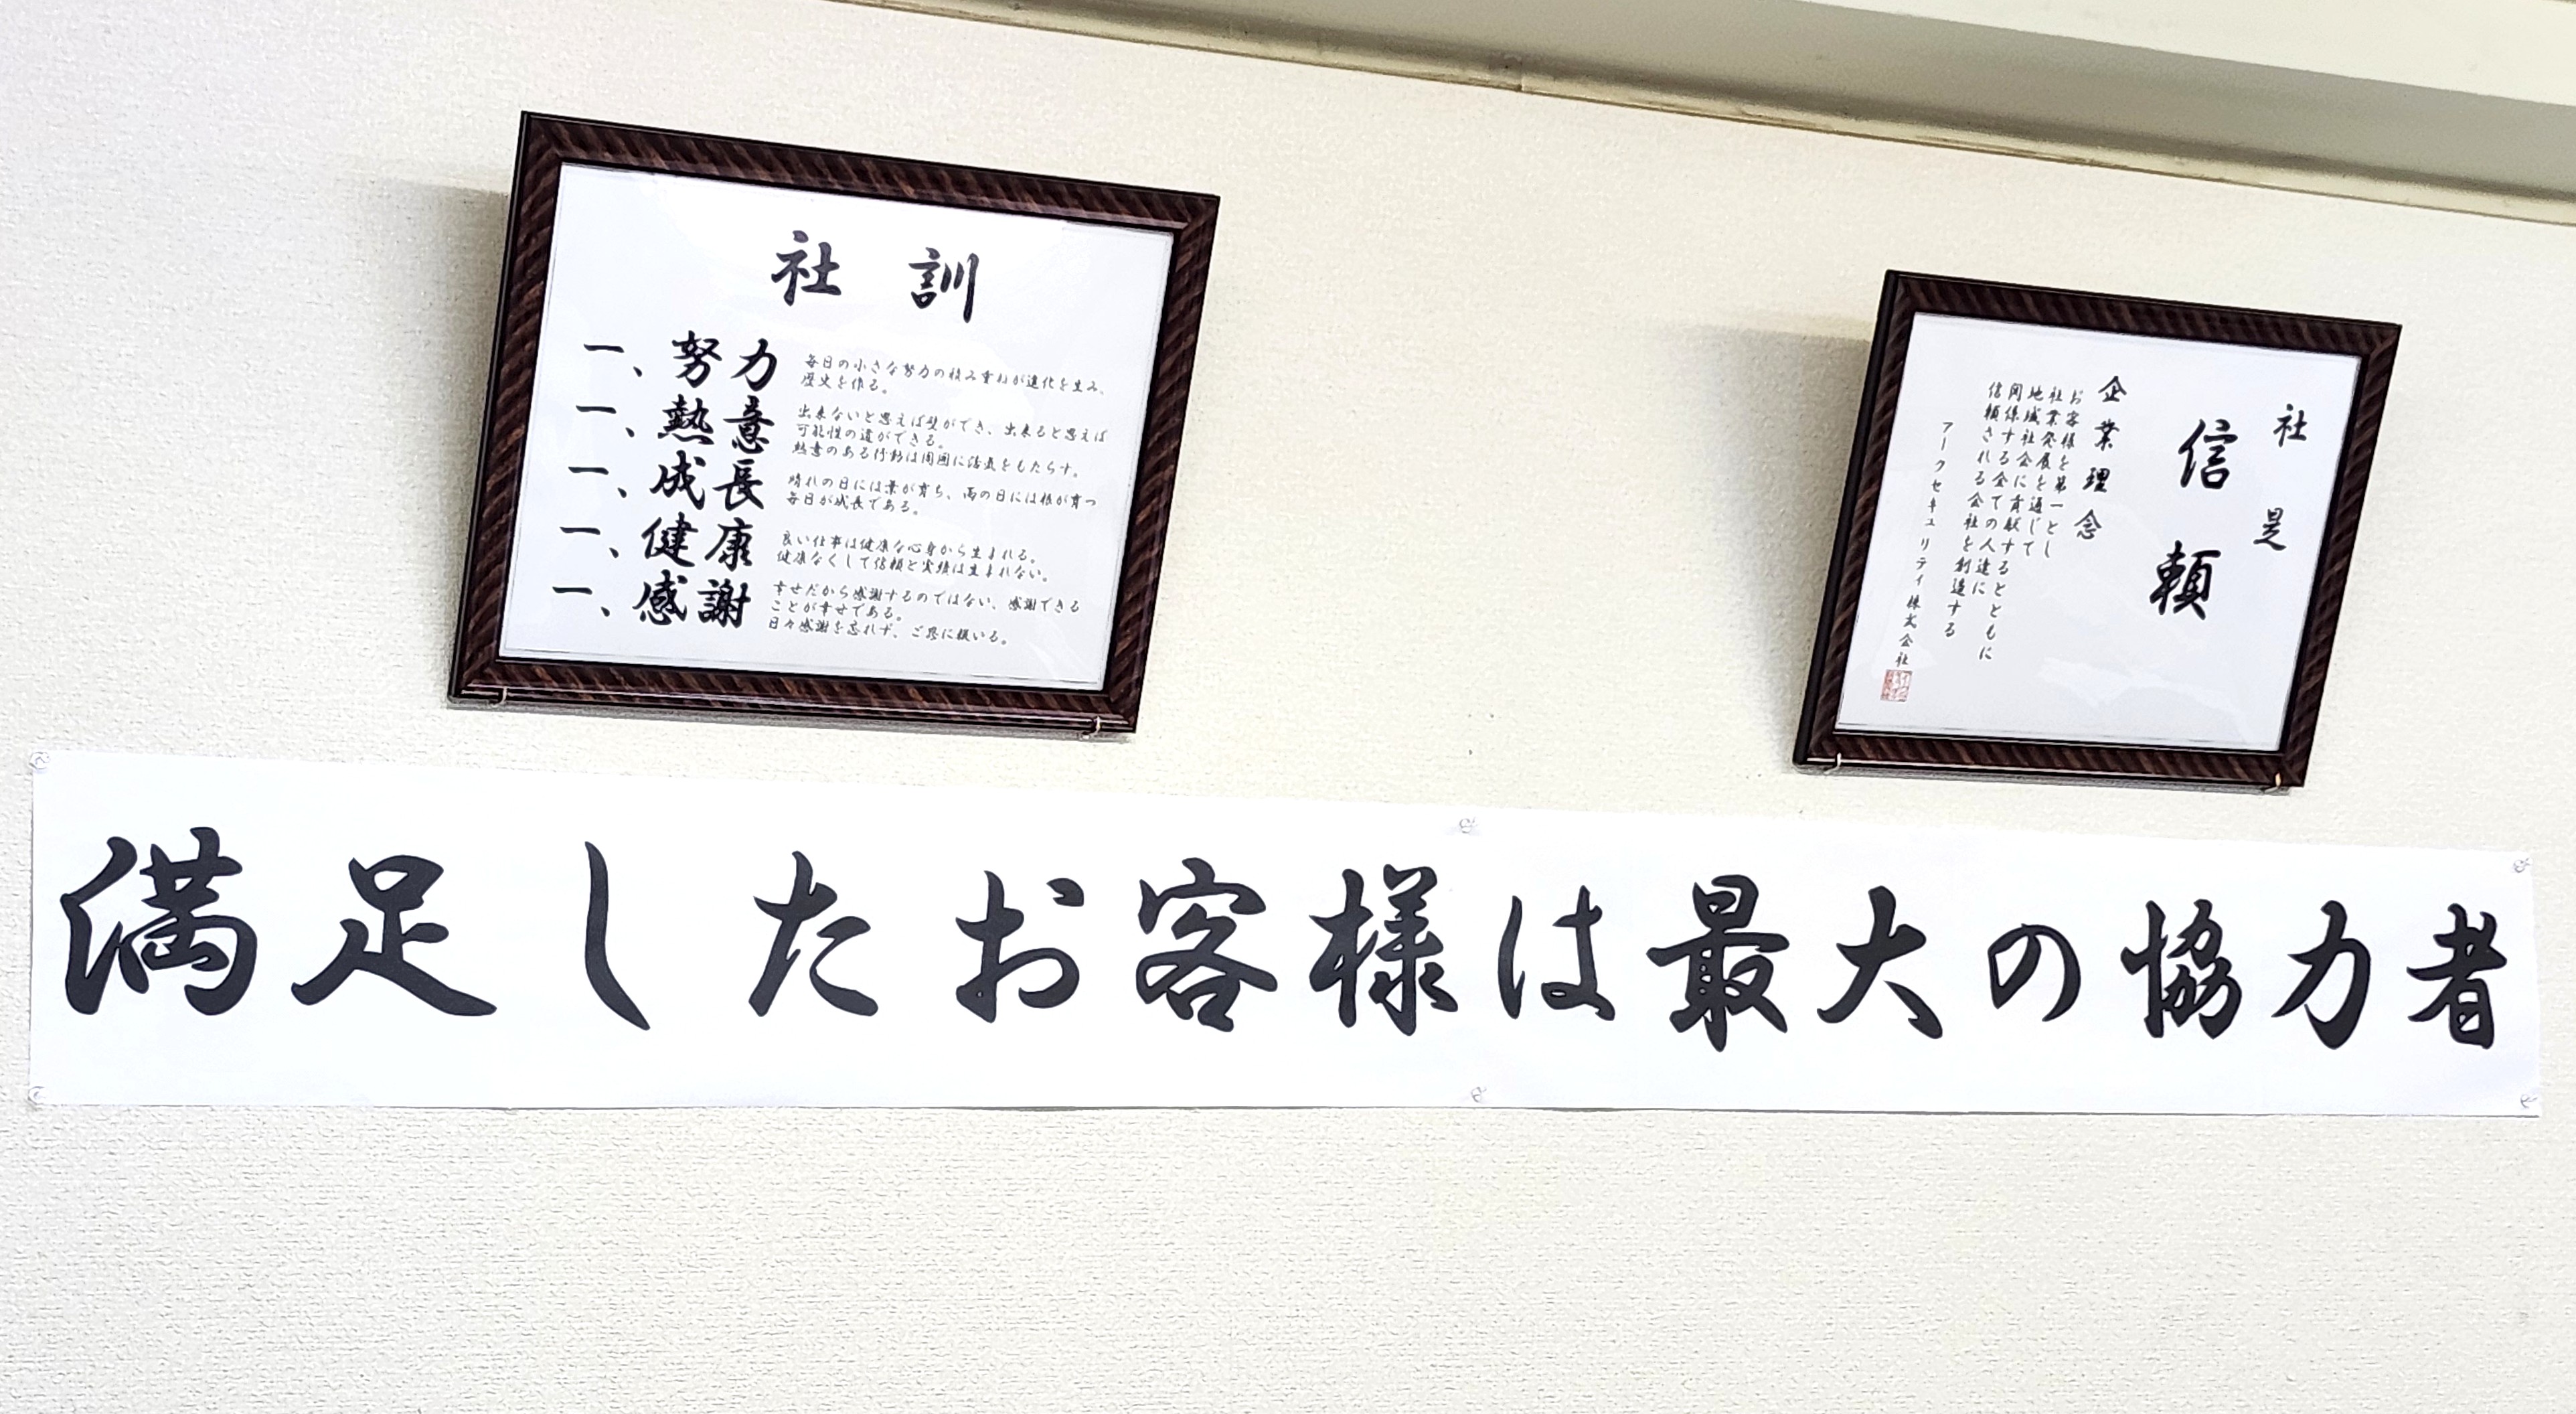 社訓
一、努力
毎日の小さな努力の積み重ねが進化を生み、
歴史を作る。
一、熱意
出来ないと思えば壁ができ、出来ると思えば
可能性の道ができる。
熱意のある行動は周囲に活気をもたらす。
一、成長
晴れの日には葉が育ち、雨の日には根が育つ
毎日が成長である。
一、健康
良い仕事は健康な心身から生まれる。
健康なくして信頼と実績は生まれない。
一、感謝
幸せだから感謝するのではない、感謝できる
ことが幸せである。
日々感謝を忘れず、ご恩に報いる。
社是
信頼
企業理念
お客様を第一とし
社業発展を通じて
地域社会に貢献するとともに
関係する全ての人達に
信頼される会社を創造する
アークセキュリティ株式会社
満足したお客様は最大の協力者